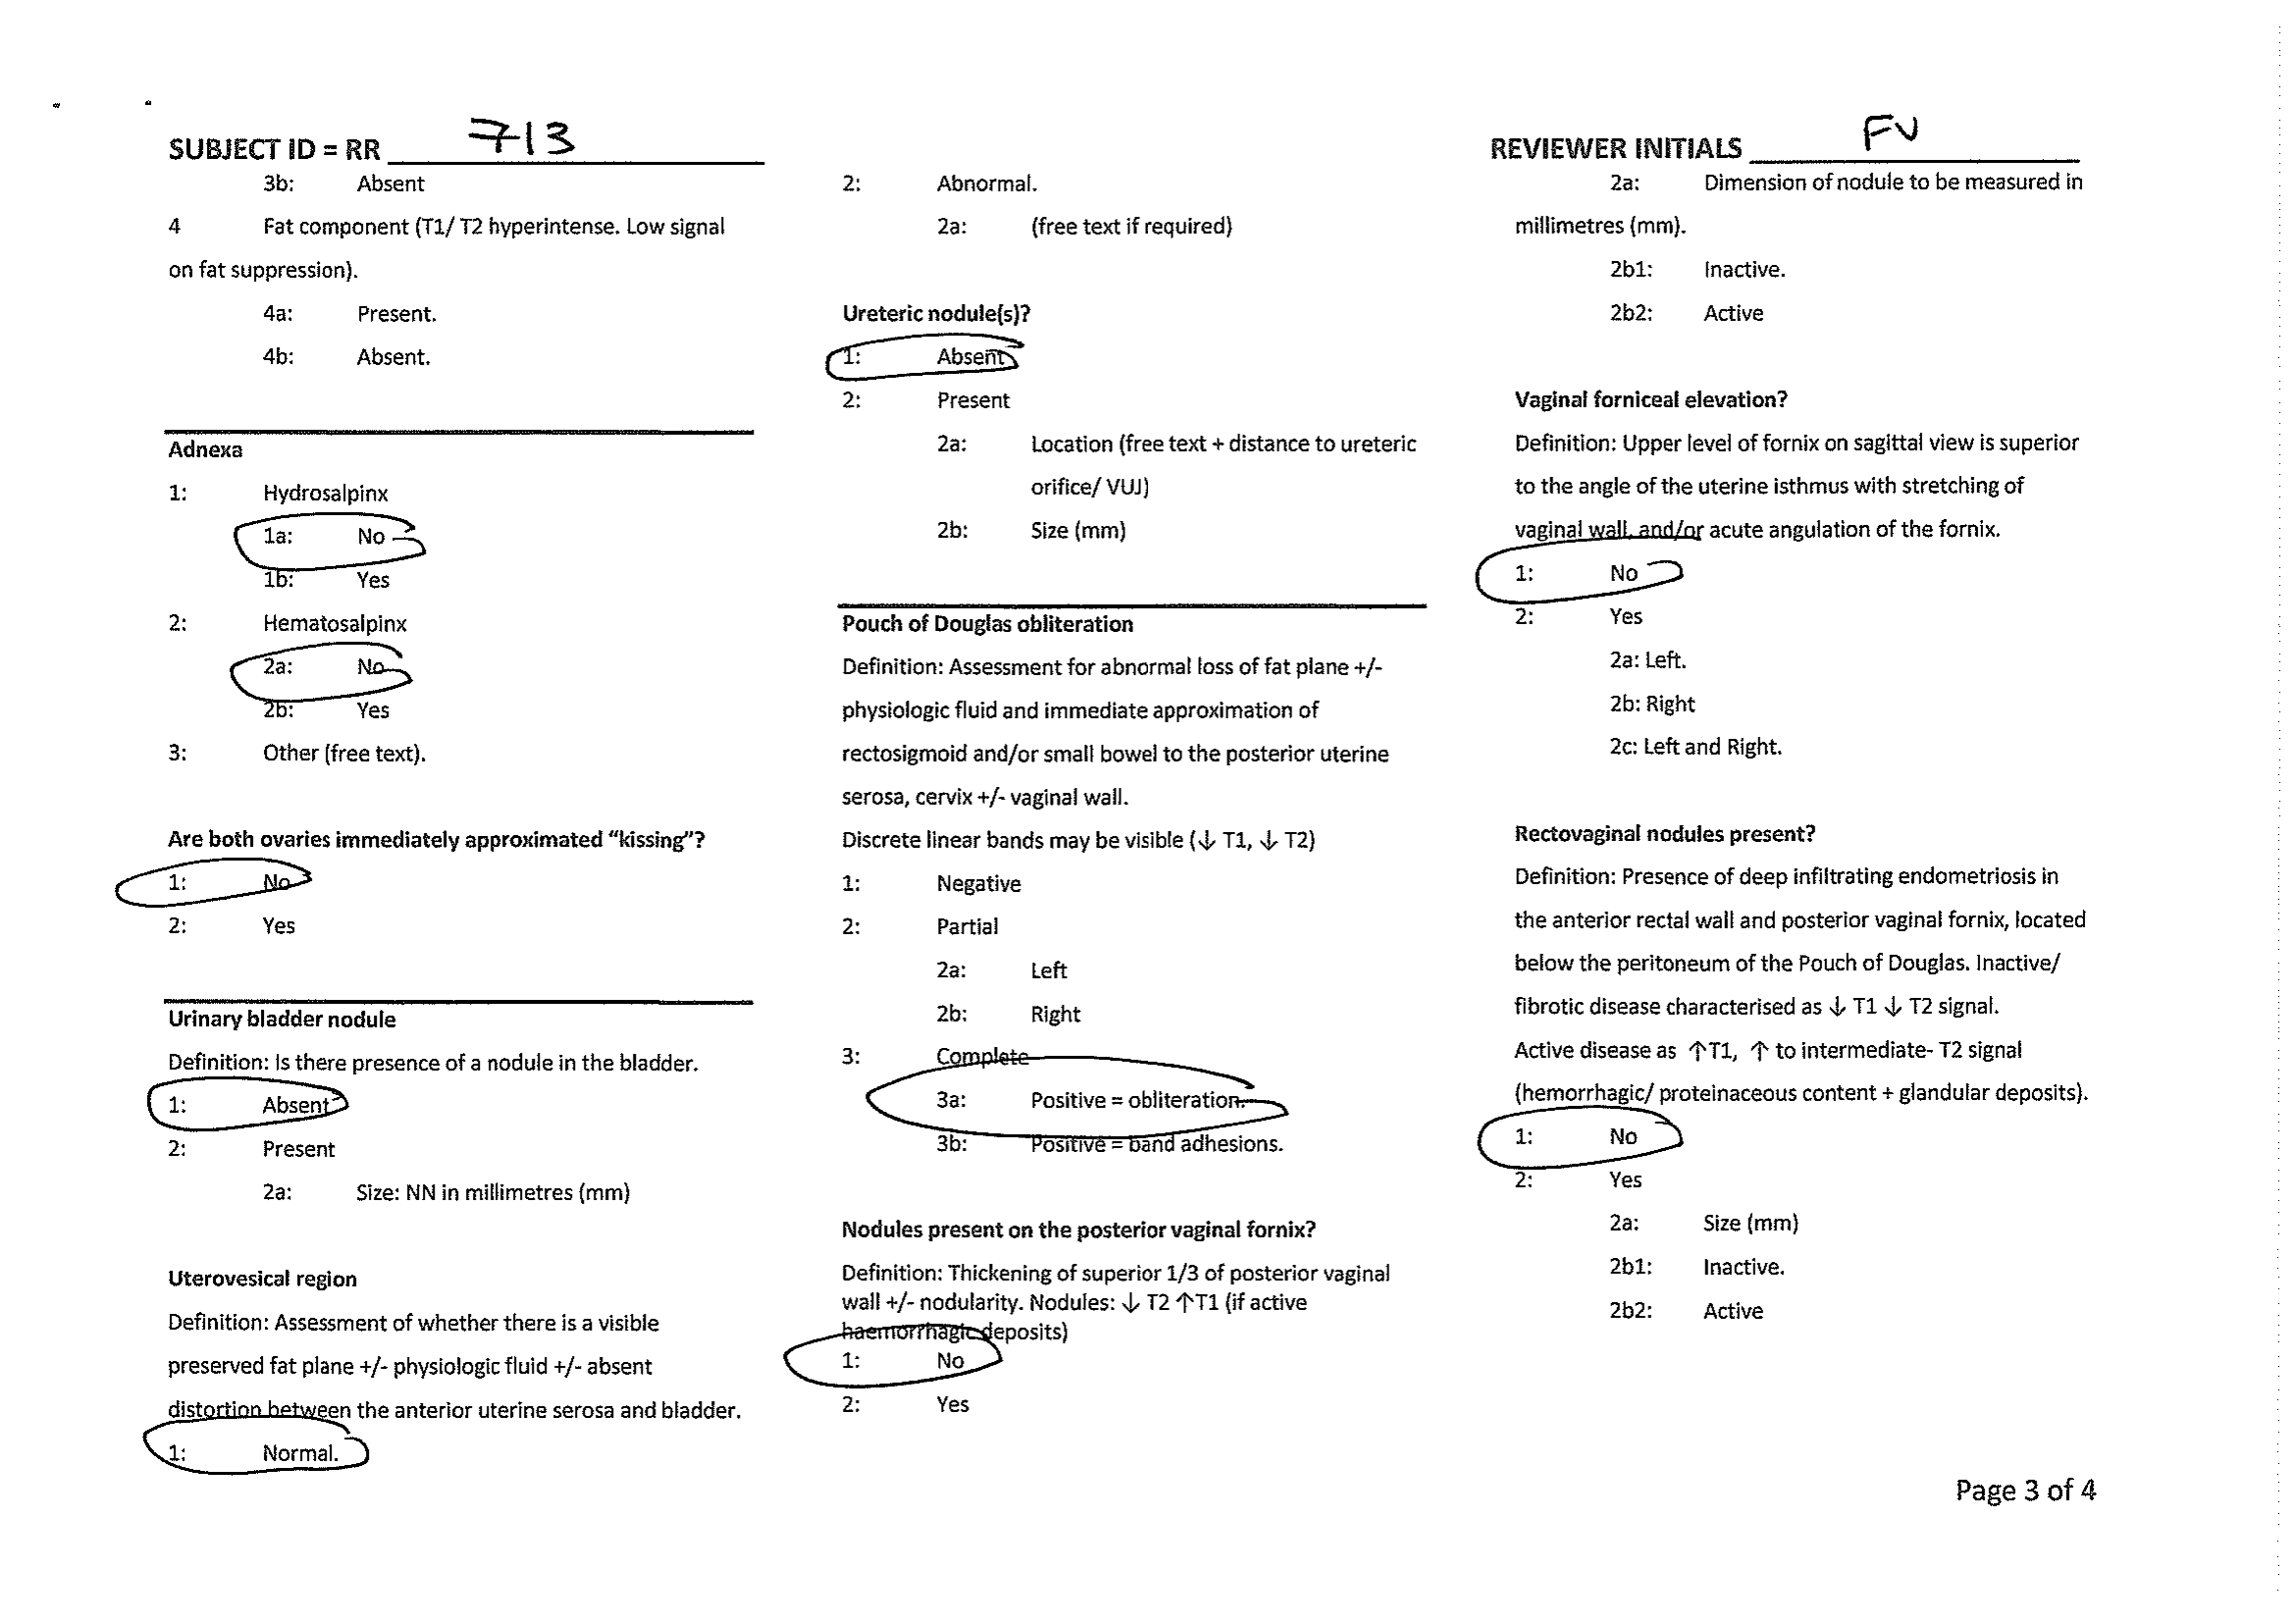 SUBJECT ID = RR 713
3b: Absent
4 Fat component (T1/ T2 hyperintense. Low signal
on fat suppression).
4a: Present.
4b: Absent.
Adnexa
1: Hydrosalpinx
1a: No
1b: Yes
2: Hematosalpinx
2a: No
2b: Yes
3: Other (free text).
Are both ovaries immediately approximated “kissing”?
1: No
2: Yes
Urinary bladder nodule
Definition: Is there presence of a nodule in the bladder.
1: Absent
2: Present
2a: Size: NN in millimetres (mm)
Uterovesical region
Definition: Assessment of whether there is a visible
preserved fat plane +/- physiologic fluid +/- absent
distortion between the anterior uterine serosa and bladder.
1: Normal.
2: Abnormal.
2a: (free text if required)
Ureteric nodule(s)?
1: Absent
2: Present
2a: Location (free text + distance to ureteric
orifice/ VUJ)
2b: Size (mm)
Pouch of Douglas obliteration
Definition: Assessment for abnormal loss of fat plane +/-
physiologic fluid and immediate approximation of
rectosigmoid and/or small bowel to the posterior uterine
serosa, cervix +/- vaginal wall.
Discrete linear bands may be visible (↓ T1, ↓ T2)
1: Negative
2: Partial
2a: Left
2b: Right
3: Complete
3a: Positive = obliteration.
3b: Positive = band adhesions.
Nodules present on the posterior vaginal fornix?
Definition: Thickening of superior 1/3 of posterior vaginal
wall +/- nodularity. Nodules: ↓ T2 ↑T1 (if active
haemorrhagic deposits)
1: No
2: Yes
REVIEWER INITIALS FV
2a: Dimension of nodule to be measured in
millimetres (mm).
2b1: Inactive.
2b2: Active
Vaginal forniceal elevation?
Definition: Upper level of fornix on sagittal view is superior
to the angle of the uterine isthmus with stretching of
vaginal wall, and/or acute angulation of the fornix.
1: No
2: Yes
2a: Left.
2b: Right
2c: Left and Right.
Rectovaginal nodules present?
Definition: Presence of deep infiltrating endometriosis in
the anterior rectal wall and posterior vaginal fornix, located
below the peritoneum of the Pouch of Douglas. Inactive/
fibrotic disease characterised as ↓ T1 ↓ T2 signal.
Active disease as ↑T1, ↑ to intermediate- T2 signal
(hemorrhagic/ proteinaceous content + glandular deposits).
1: No
2: Yes
2a: Size (mm)
2b1: Inactive.
2b2: Active
Page 3 of 4